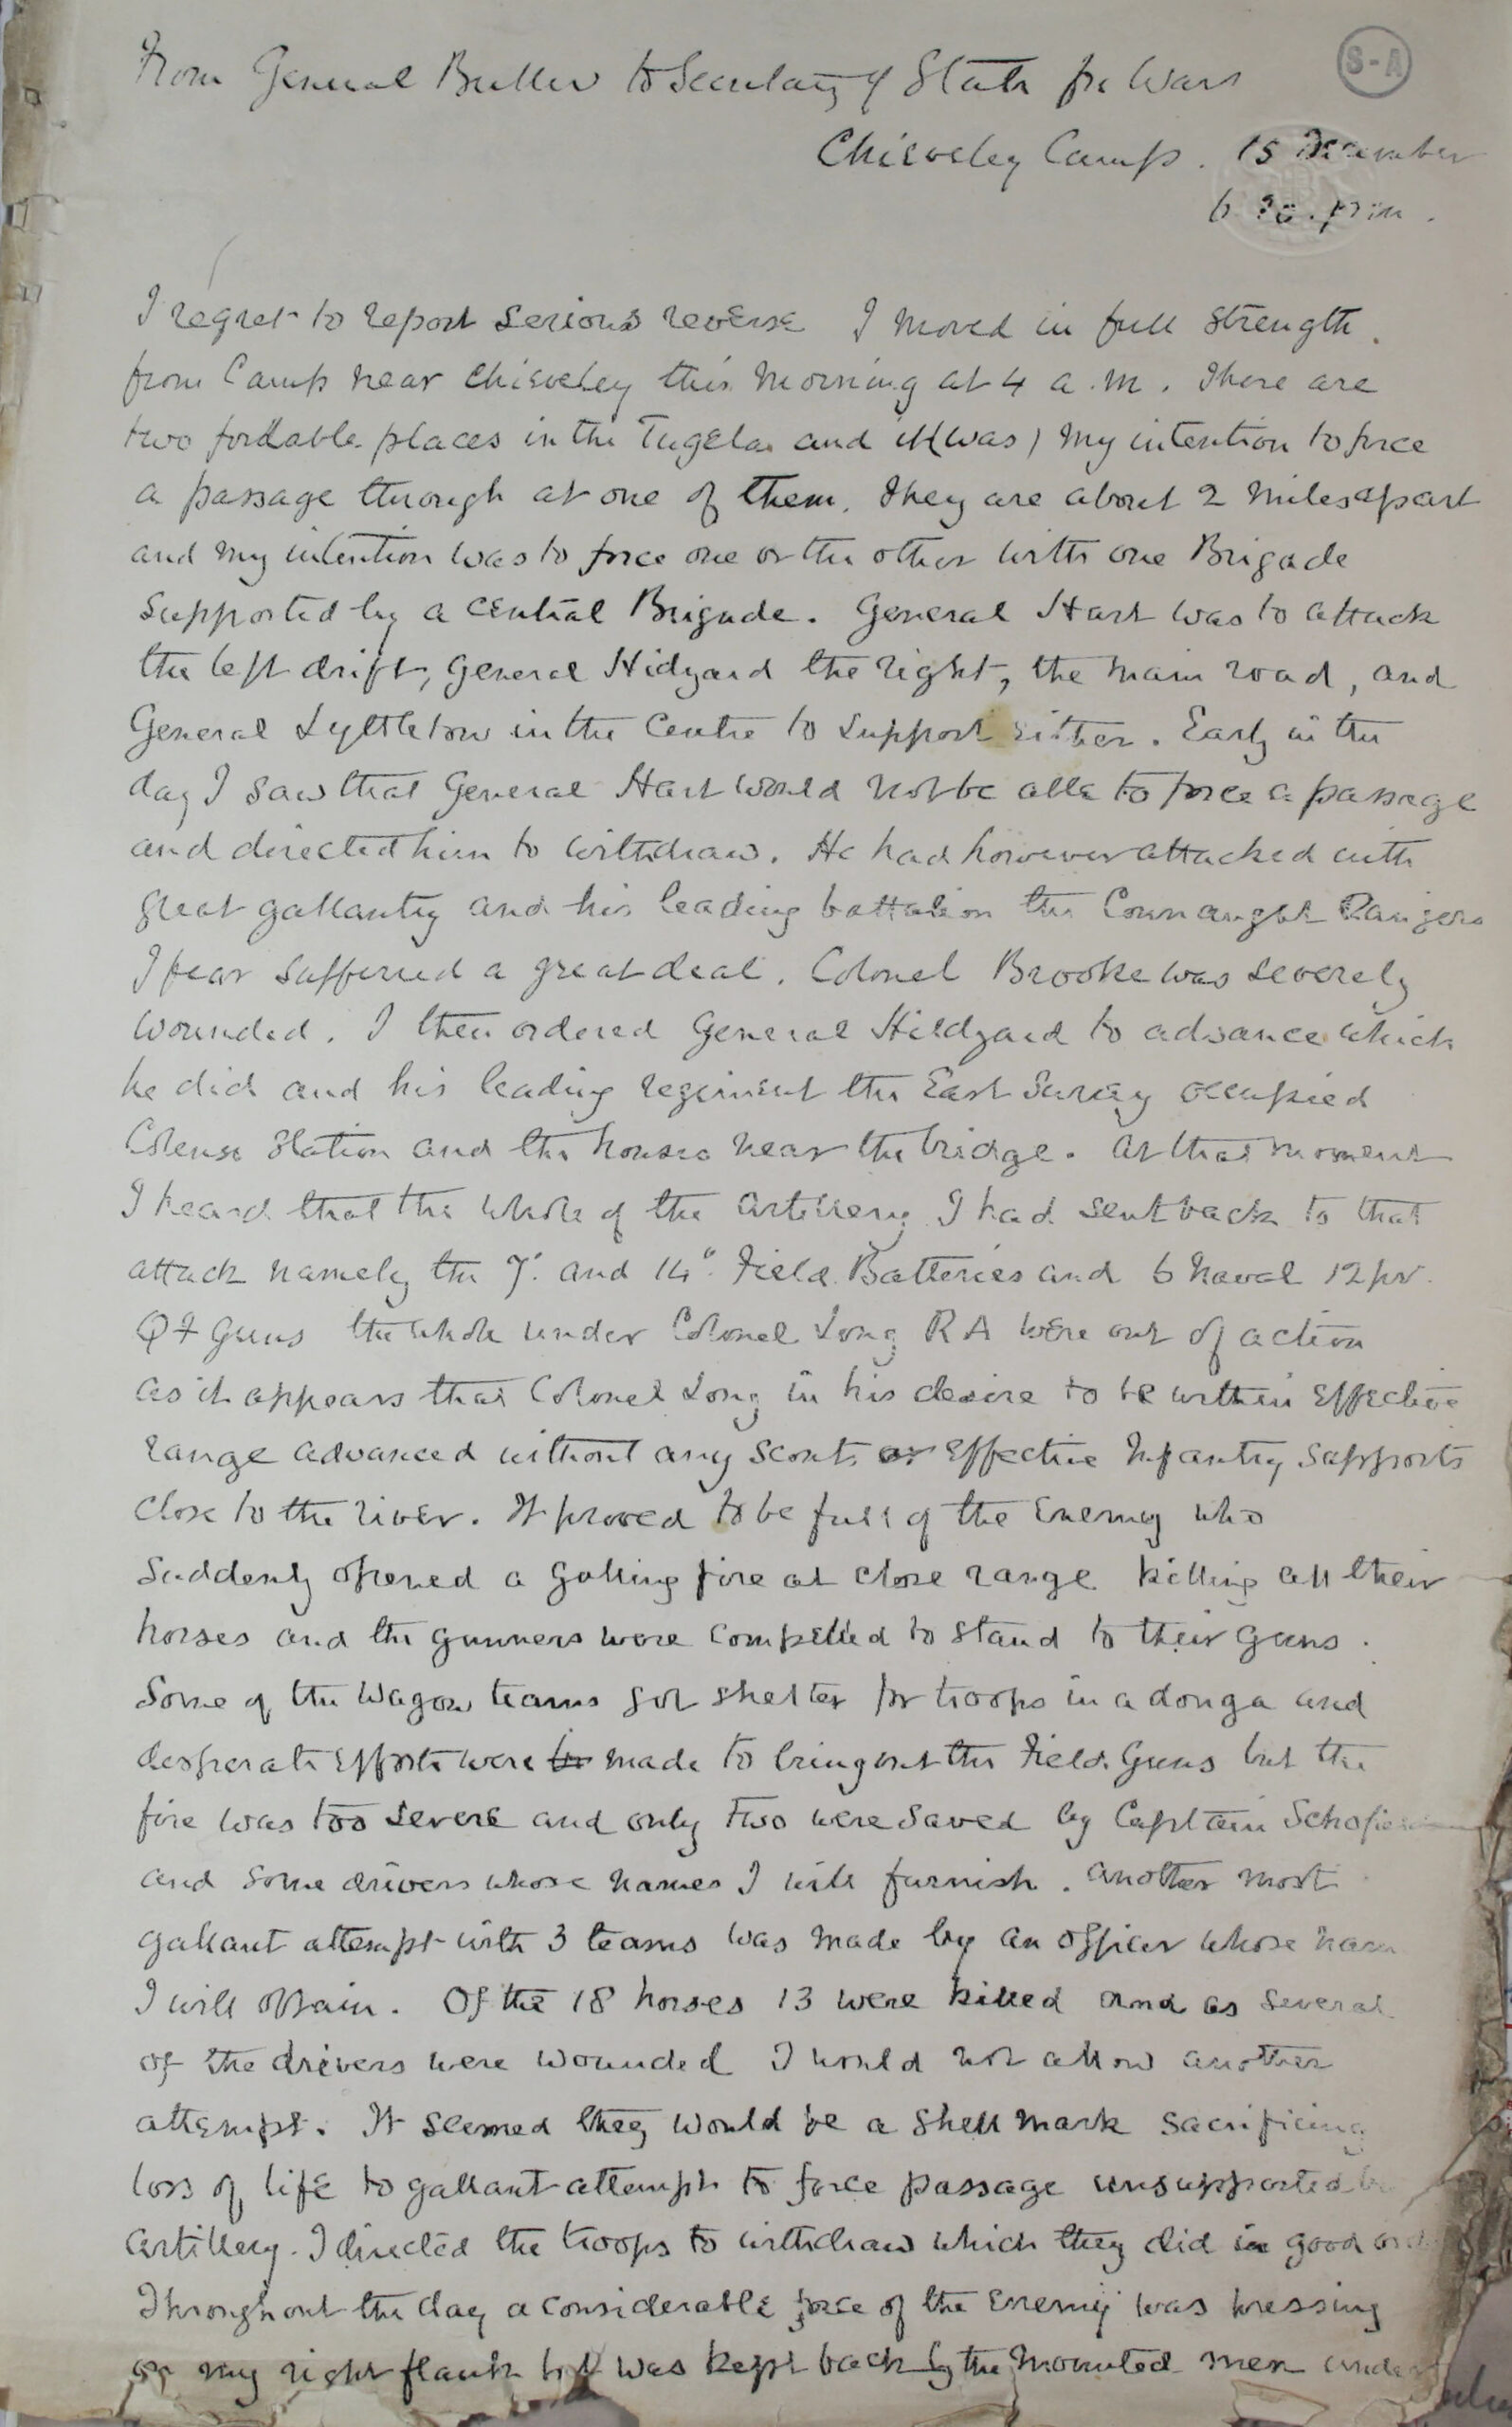 S-A
From General Buller to Secretary of State for War
Chieveley Camp. 15 December
6 20. pm.
I regret to report serious reverse I moved in full strength.
from Camp near Chieveley this morning at 4 a.m. There are
two fordable places in the Tugela and it (was) my intention to force
a passage through at one of them. They are about 2 miles apart
and my intention was to force one or the other with one Brigade
supported by a central Brigade. General Hart was to attack
the left drift, General Hidyard the right, the main road, and
General Lyttleton in the Centre to support either. Early in the
day I saw that General Hart would not be able to force a passage
and directed him to withdraw. He had however attacked with
great gallantry and his leading battalion the Connaught Rangers
I fear suffered a great deal. Colonel Brooke was severely
wounded. I then ordered General Hildyard to advance which
he did and his leading regiment the East Surrey occupied
Colenso Station and the houses near the bridge. At that moment
I heard that the whole of the artillery I had sent back to that
attack namely the 7" and 14" Field Batteries and 6 naval 12 pr.
QF Guns the whole under Colonel Long RA were out of action
as it appears that Colonel Long in his desire to be within effective
range advanced without any scouts or effective Infantry supports
close to the river. It proved to be full of the Enemy who
suddenly opened a galling fire at close range killing all their
horses and the gunners were compelled to stand to their guns.
Some of the Wagon teams got shelter for troops in a donga and
desperate efforts were made to bring out the Field Guns but the
fire was too severe and only two were saved by Captain Schofield
and some drivers whose names I will furnish. Another most
gallant attempt with 3 teams was made by an officer whose name
I will obtain. Of the 18 horses 13 were killed and as several
of the drivers were wounded I would not allow another
attempt. It seemed they would be a shell mark sacrificing
loss of life to gallant attempt to force passage unsupported by
artillery. I directed the troops to withdraw which they did in good order
Throughout the day a considerable force of the Enemy was pressing
on my right flank but was kept back by the mounted men under